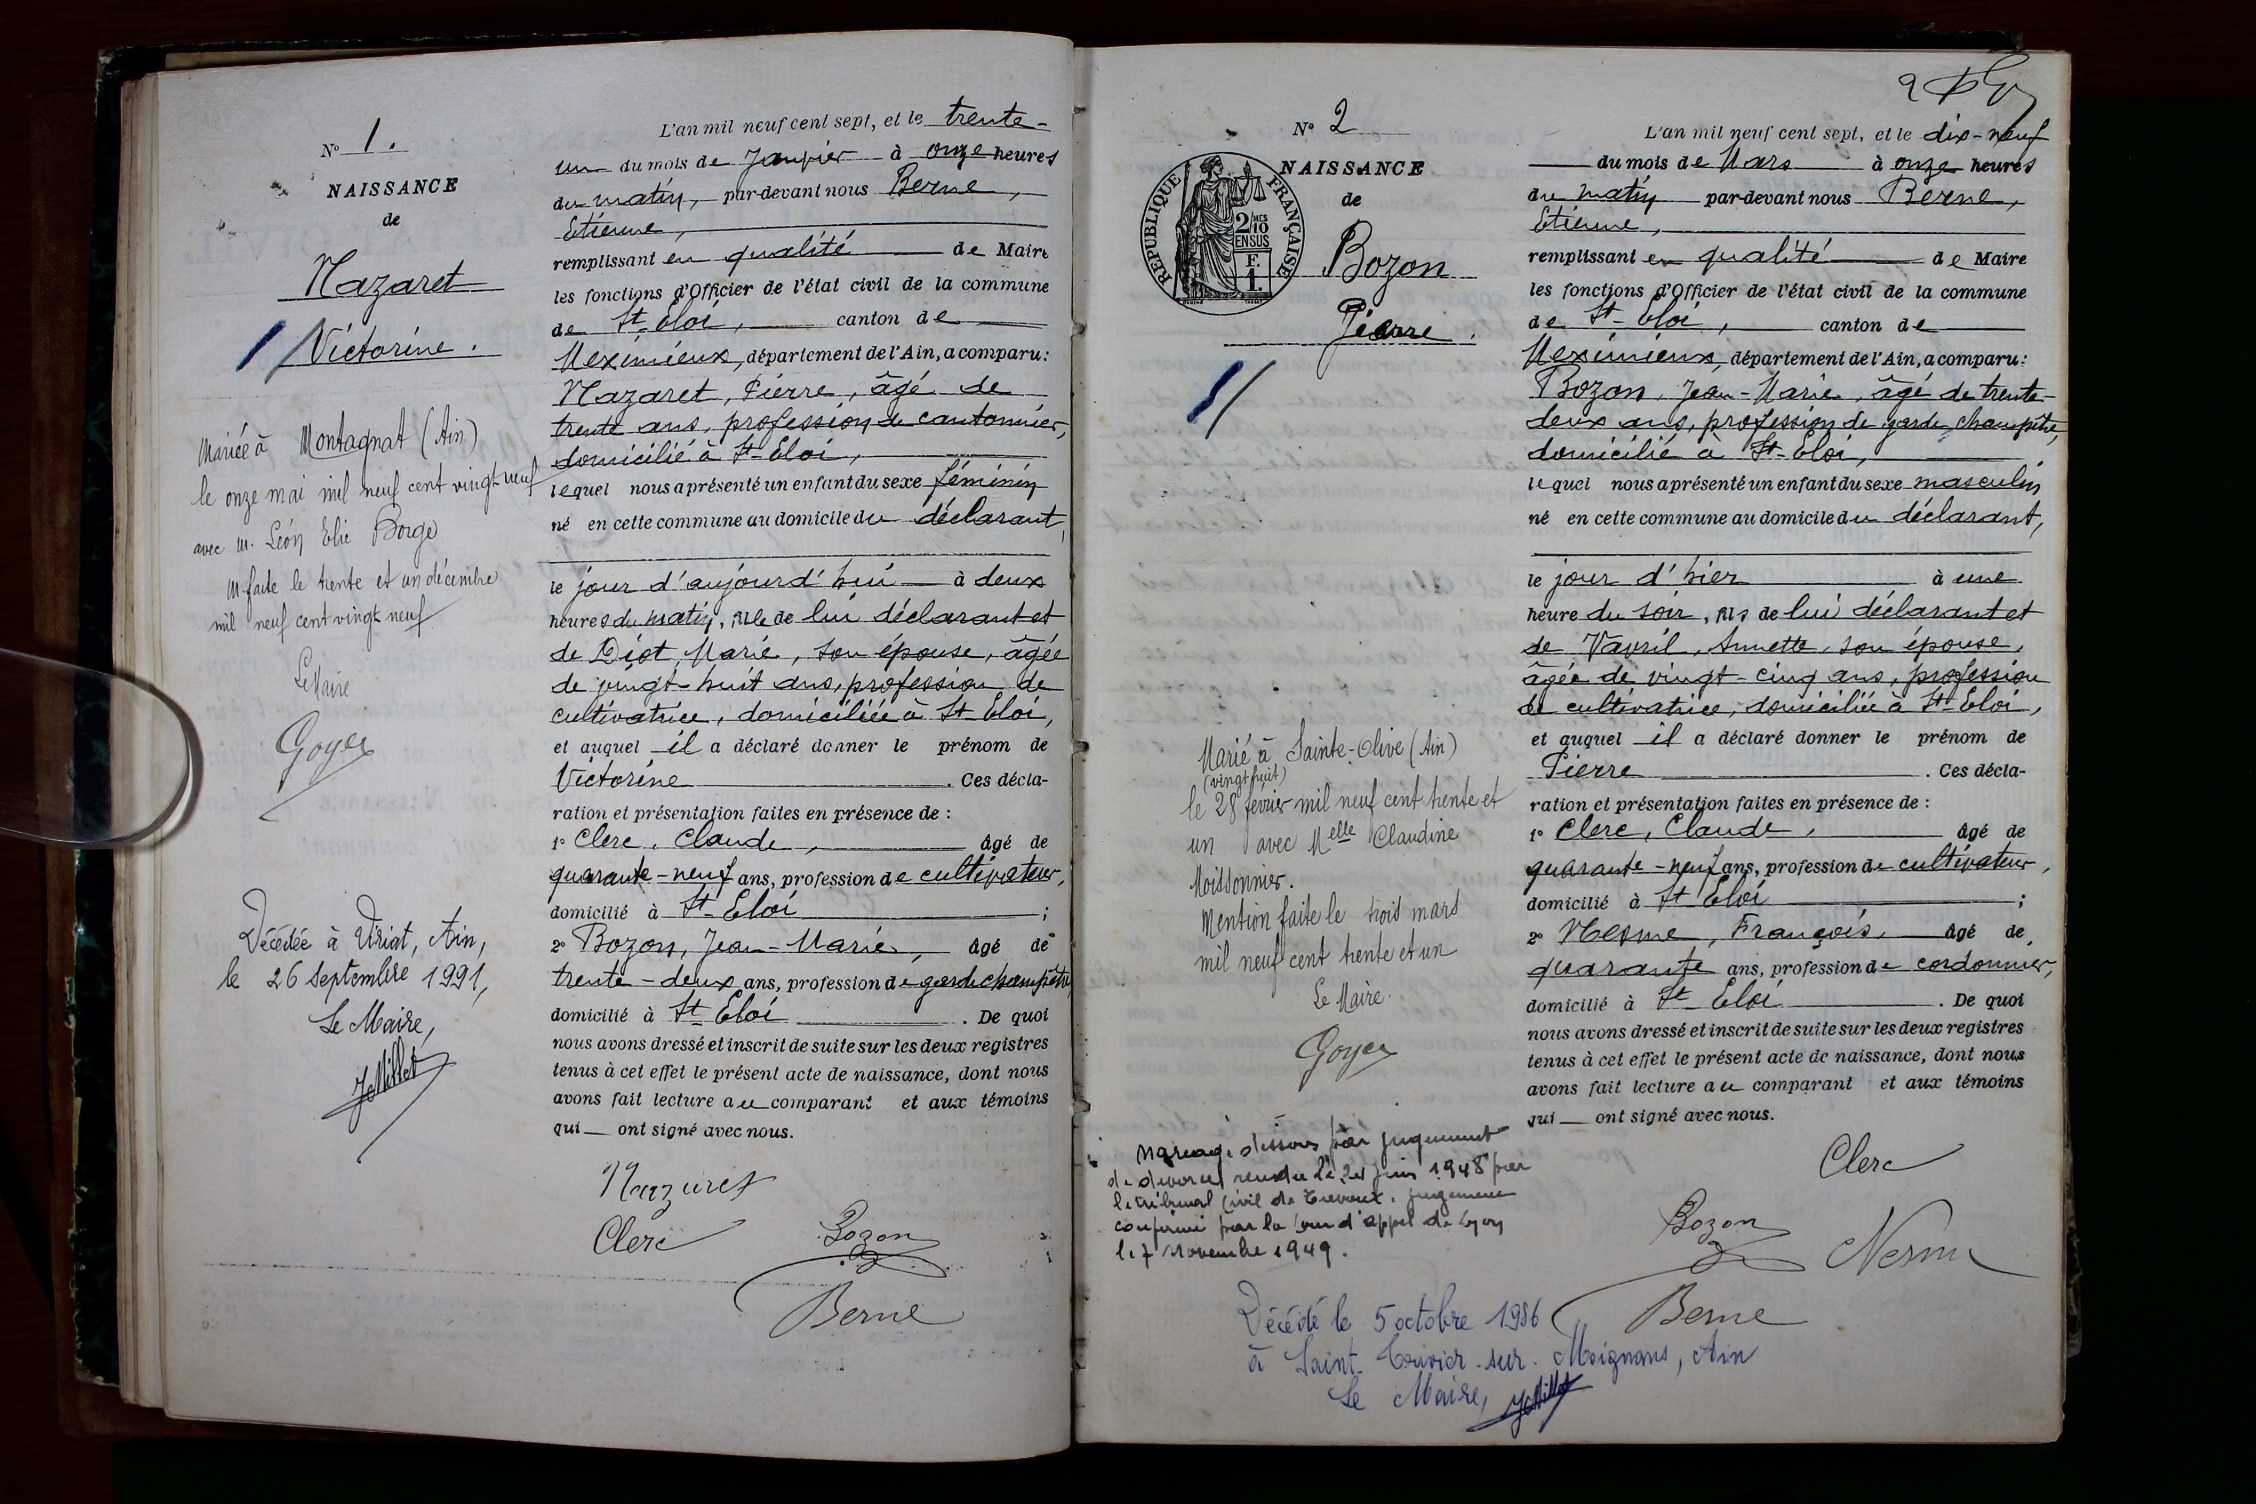 N° 1.
NAISSANCE
de
Nazaret
Victorine.
Mariée à Montagnat (Ain)
le onze mai mil neuf cent vingt-neuf
avec M. Léon Elie Borge
M. faite le trente et un décembre
mil neuf cent vingt neuf
Le Maire
Goyer
Décédée à Viriat, Ain,
le 26 septembre 1991,
Le Maire,
L'an mil neuf cent sept, et le trente-
un du mois de Janvier à onze heures
du matin, par-devant nous Berne,
Etienne,
remplissant en qualité de Maire
les fonctions d'Officier de l'état civil de la commune
de St-Eloi, canton de
Meximieux, département de l'Ain, a comparu:
Nazaret, Pierre, âgé de
trente ans, profession de cantonnier,
domicilié à St-Eloi,
lequel nous a présenté un enfant du sexe féminin
né en cette commune au domicile du déclarant,
le jour d'aujourd'hui à deux
heures du matin, fille de lui déclarant et
de Diot, Marie, son épouse, âgée
de vingt-huit ans, profession de
cultivatrice, domiciliée à St Eloi,
et auquel il a déclaré donner le prénom de
Victorine. Ces décla-
ration et présentation faites en présence de :
1° Clerc, Claude, âgé de
quarante-neuf ans, profession de cultivateur,
domicilié à St-Eloi ;
2° Bozon, Jean-Marie, âgé de
trente-deux ans, profession de garde champêtre,
domicilié à St-Eloi. De quoi
nous avons dressé et inscrit de suite sur les deux registres
tenus à cet effet le présent acte de naissance, dont nous
avons fait lecture au comparant et aux témoins
qui ont signé avec nous.
Nazaret
Clerc Bozon
Berne
N° 2
NAISSANCE
de
RÉPUBLIQUE FRANÇAISE
2/10 MES
EN SUS
F.
1.
Bozon
Pierre.
Marié à Sainte-Olive (Ain)
(vingt huit)
le 28 février mil neuf cent trente et
un avec Melle Claudine
Moissonnier.
Mention faite le trois mars
mil neuf cent trente et un
Le Maire.
Goyer
Mariage dissous par jugement
de divorce rendu le 24 juin 1948 par
le tribunal civil de Trévoux. Jugement
confirmé par la Cour d'appel de Lyon
le 7 Novembre 1949.
Décédé le 5 octobre 1986
à Saint-Trivier-sur-Moignans, Ain
Le Maire,
L'an mil neuf cent sept, et le dix-neuf
du mois de Mars à onze heures
du matin par-devant nous Berne,
Etienne,
remplissant en qualité de Maire
les fonctions d'Officier de l'état civil de la commune
de St-Eloi, canton de
Meximieux, département de l'Ain, a comparu:
Bozon, Jean-Marie, âgé de trente-
deux ans, profession de garde champêtre,
domicilié à St-Eloi,
lequel nous a présenté un enfant du sexe masculin
né en cette commune au domicile du déclarant,
le jour d'hier à une
heure du soir, fils de lui déclarant et
de Vavril, Annette, son épouse,
âgée de vingt-cinq ans, profession
de cultivatrice, domiciliée à St-Eloi,
et auquel il a déclaré donner le prénom de
Pierre. Ces décla-
ration et présentation faites en présence de :
1° Clerc, Claude, âgé de
quarante-neuf ans, profession de cultivateur,
domicilié à St Eloi ;
2° Mesme, François, âgé de
quarante ans, profession de cordonnier,
domicilié à St-Eloi. De quoi
nous avons dressé et inscrit de suite sur les deux registres
tenus à cet effet le présent acte de naissance, dont nous
avons fait lecture au comparant et aux témoins
qui ont signé avec nous.
Clerc
Bozon
Berne